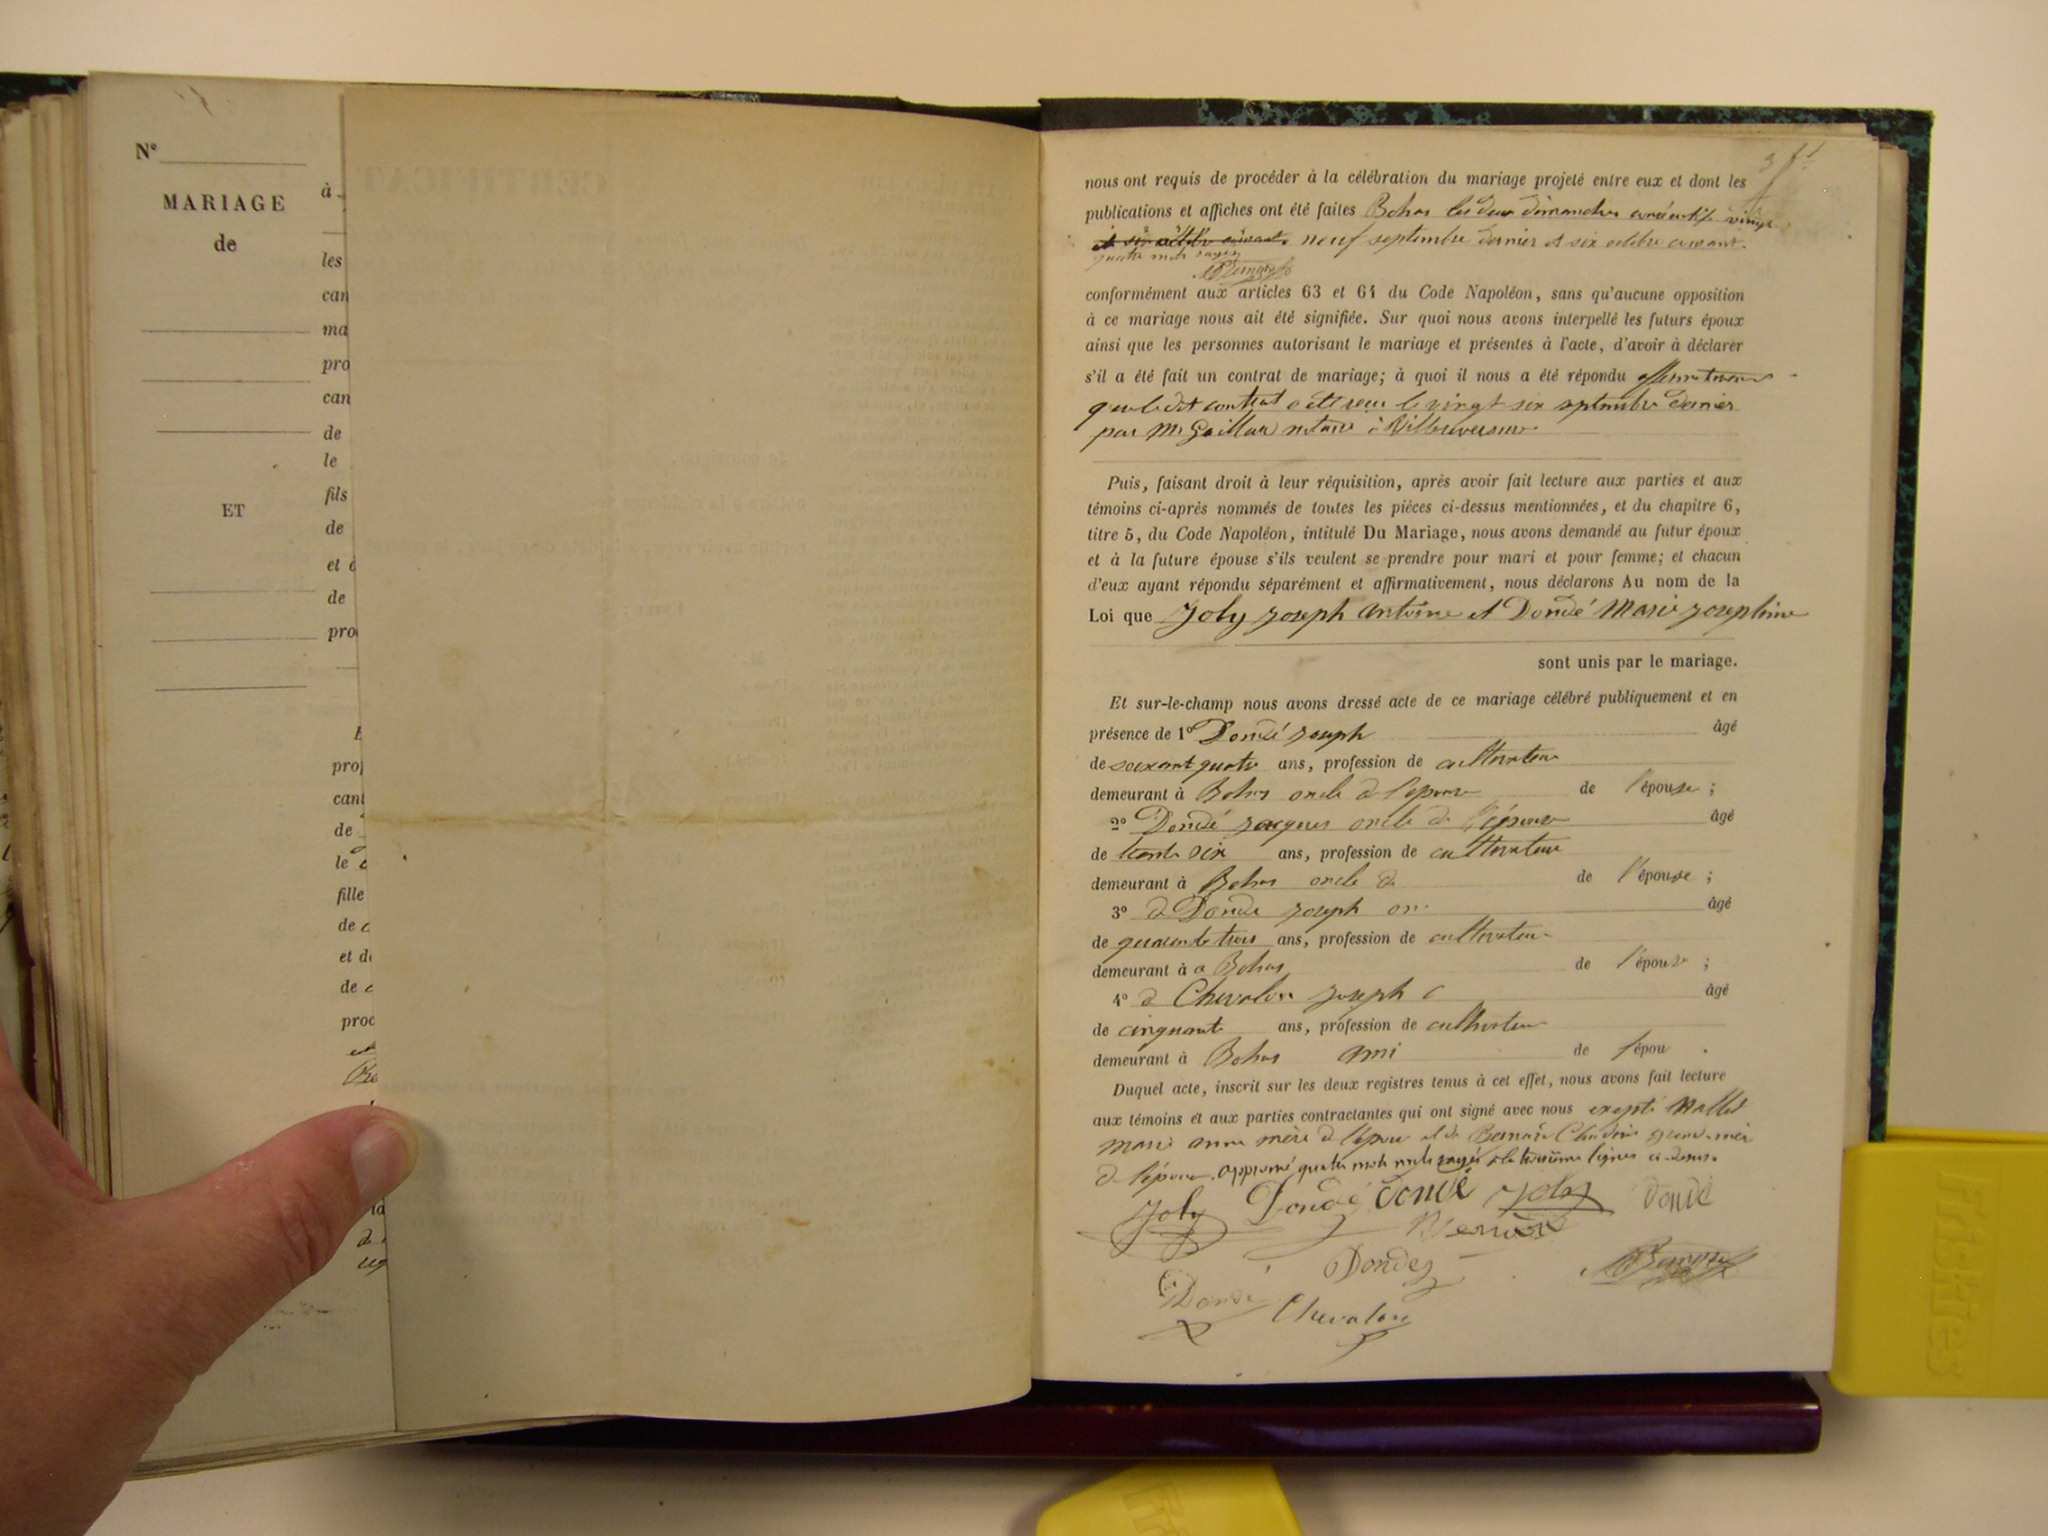 Nº
MARIAGE
de
ET
à
les
can
ma
pro
can
de
le
fils
de
et
de
pro
pro
cant
de
le
fille
de
et de
de
proc
nous ont requis de procéder à la célébration du mariage projeté entre eux et dont les
publications et affiches ont été faites Bohas les deux dimanches consécutifs vingt
et six octobre courant. neuf septembre dernier et six octobre courant.
quatre mots rayés
conformément aux articles 63 et 64 du Code Napoléon, sans qu'aucune opposition
à ce mariage nous ait été signifiée. Sur quoi nous avons interpellé les futurs époux
ainsi que les personnes autorisant le mariage et présentes à l'acte, d'avoir à déclarer
s'il a été fait un contrat de mariage; à quoi il nous a été répondu
que le dit contrat a été reçu le vingt six septembre dernier
par Me notaire à Villereversure
Puis, faisant droit à leur réquisition, après avoir fait lecture aux parties et aux
témoins ci-après nommés de toutes les pièces ci-dessus mentionnées, et du chapitre 6,
titre 5, du Code Napoléon, intitulé Du Mariage, nous avons demandé au futur époux
et à la future épouse s'ils veulent se prendre pour mari et pour femme; et chacun
d'eux ayant répondu séparément et affirmativement, nous déclarons Au nom de la
Loi que Joly Joseph Antoine et Dondé Marie Josephine
sont unis par le mariage.
Et sur-le-champ nous avons dressé acte de ce mariage célébré publiquement et en
présence de 1º Dondé Joseph âgé
de soixant quatre ans, profession de cultivateur
demeurant à Bohas oncle de l'épouse de l'épouse;
2º Dondé Jacques oncle de l'épouse âgé
de trente six ans, profession de cultivateur
demeurant à Bohas oncle de de l'épouse;
3º d Dondé Joseph on âgé
de quarante trois ans, profession de cultivateur
demeurant à a Bohas de l'épouse;
4º d Chevalon Joseph âgé
de cinquante ans, profession de cultivateur
demeurant à Bohas ami de l'épou
Duquel acte, inscrit sur les deux registres tenus à cet effet, nous avons fait lecture
aux témoins et aux parties contractantes qui ont signé avec nous excepté Mallet
marie anne mère de l'épou et de Claudine grand mère
de l'épouse. approuvé quatre mots nuls rayés à la troisième ligne ci-dessus.
Joly Dondé Dondé Joly Dondé
Dondez
Dondé Chevalon
Faktes